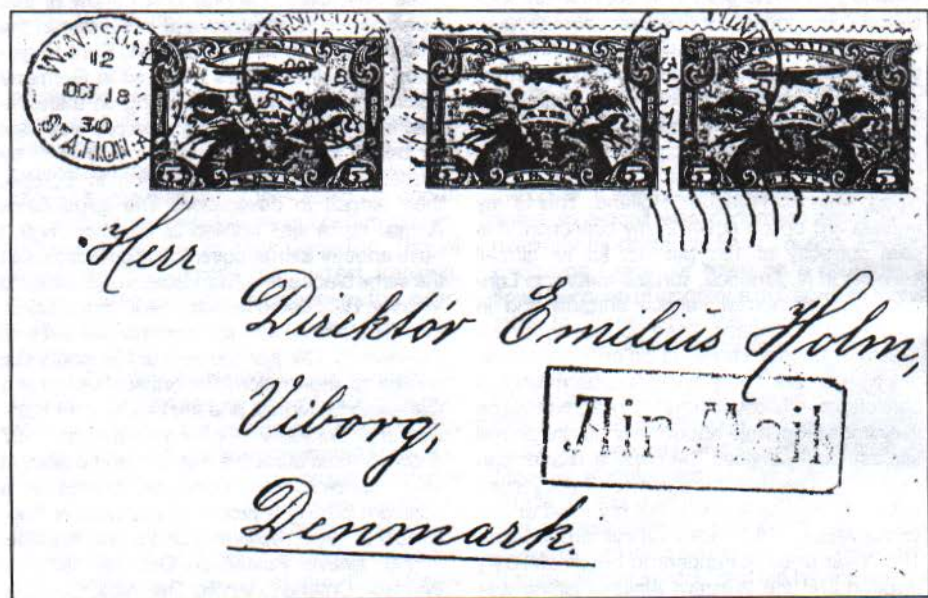 WINDSOR
12
OCT 18
30
STATION A
18
CANADA
5 5
CANADA
5 5
CANADA
5 5
Herr
Direktör Emilius Holm,
Viborg,
Denmark.
Air Mail